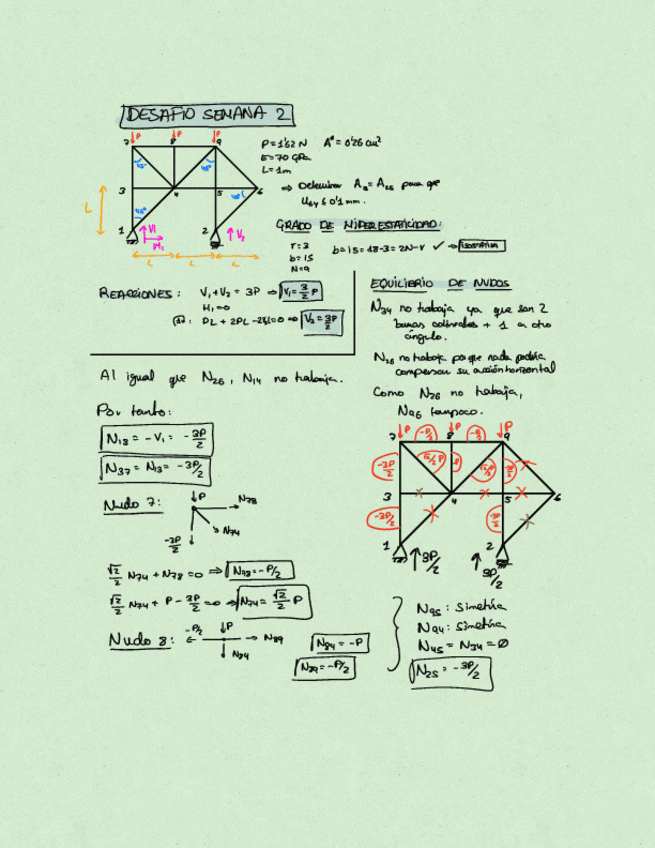 DESAFÍO SEMANA 2
P P P
7 8 9
45° 45°
3 4 5 6
45°
45°
L
1 V1 2 V2
H1
L L L
P=1'62 N A*=0'26 cm²
E=70 GPa
L=1m
⇒ Determinar para que
≤ 0'1 mm.
GRADO DE HIPERESTATICIDAD:
r=3
b=15 b=15=18-3=2N-r ✓ → ISOSTÁTICA
N=9
REACCIONES: V1+V2 = 3P ⇒ V1=3/2 P
H1=0
PL + 2PL -2V2L=0 ⇒ V2=3P/2
EQUILIBRIO DE NUDOS
N34 no trabaja ya que son 2
barras colineales + 1 a otro
ángulo.
N26 no trabaja porque nada podría
compensar su acción horizontal
Como N26 no trabaja,
N96 tampoco.
Al igual que N26, N14 no trabaja.
Por tanto:
N13 = -V1 = -3P/2
N37 = N13 = -3P/2
Nudo 7: P N78
N74
-3P/2
√2/2 N74 + N78 = 0 ⇒ N78=-P/2
√2/2 N74 + P - 3P/2 = 0 ⇒ N74=√2/2 P
Nudo 8: -P/2 P N89
N84
N84=-P
N89=-P/2
P P P
7 -P/2 8 -P/2 9
-3P/2 √2/2 P √2/2 P -3P/2
3 4 5 6
-3P/2 -3P/2
1 2
3P/2 3P/2
N95: Simetría
N94: Simetría
N45 = N34 = 0
N25 = -3P/2